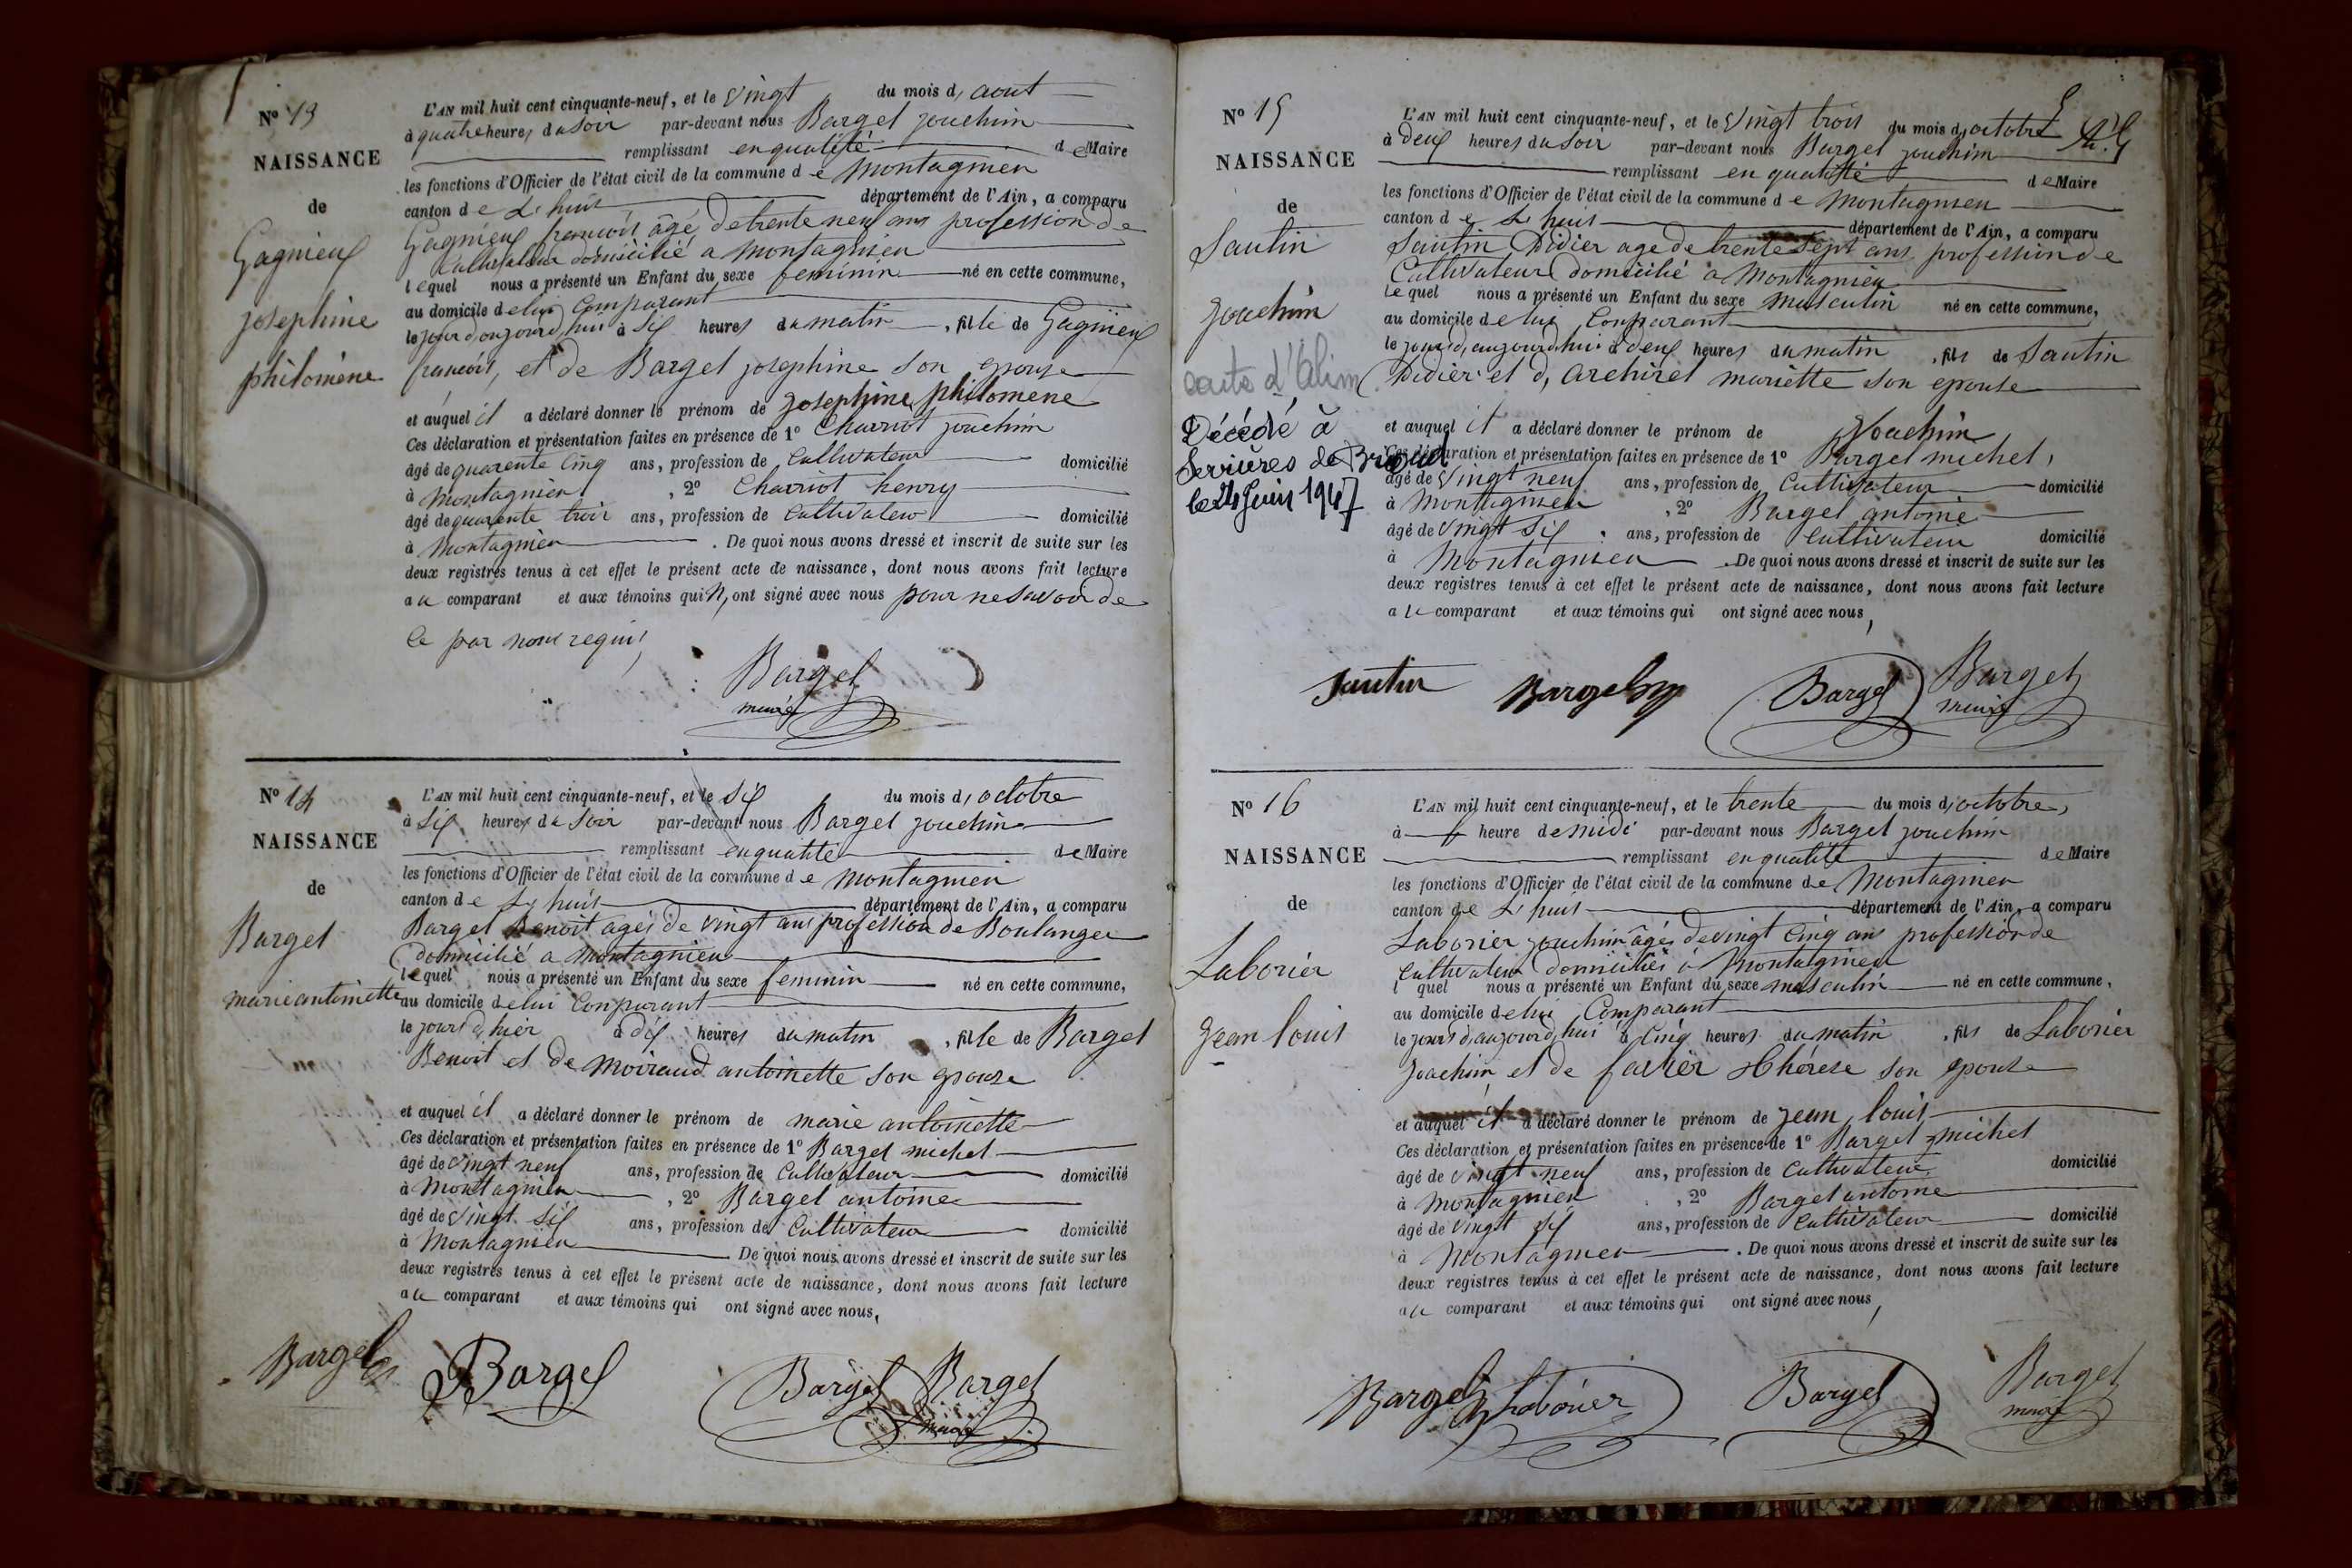 No 13
NAISSANCE
de
Gagnieux
josephine
philomène
L'AN mil huit cent cinquante-neuf, et le Vingt du mois d, aout
à quatre heures du soir par-devant nous Bargel jouchim
remplissant en qualité de Maire
les fonctions d'Officier de l'état civil de la commune de Montagnieu
canton de L'huis département de l'Ain, a comparu
Gagnieux francois âgé de trente neuf ans profession de
Cultivateur domicilié a Montagnieu
lequel nous a présenté un Enfant du sexe feminin né en cette commune,
au domicile de lui Comparant
le jour d'aujourd'hui à Six heures du matin, fille de Gagnieux
francois, et de Bargel josephine son epouse
et auquel il a déclaré donner le prénom de Josephine philomene
Ces déclaration et présentation faites en présence de 1º Charriot jouchim
âgé de quarente Cinq ans, profession de Cultivateur domicilié
à Montagnieu, 2º Charriot henry
âgé de quarente trois ans, profession de Cultivateur domicilié
à Montagnieu. De quoi nous avons dressé et inscrit de suite sur les
deux registres tenus à cet effet le présent acte de naissance, dont nous avons fait lecture
au comparant et aux témoins qui N, ont signé avec nous pour ne savoir de
Ce par nous requis,
Bargel
maire
No 14
NAISSANCE
de
Bargel
marie antoinette
L'AN mil huit cent cinquante-neuf, et le Six du mois d, octobre
à Six heures du Soir par-devant nous Bargel jouchim
remplissant en qualité de Maire
les fonctions d'Officier de l'état civil de la commune de Montagnieu
canton de L'huis département de l'Ain, a comparu
Bargel Benoit agés de vingt ans profession de Boulanger
domicilié a Montagnieu
lequel nous a présenté un Enfant du sexe feminin né en cette commune,
au domicile de lui Comparant
le jours d'hier à dix heures du matin, fille de Bargel
Benoit et de Moiraud antoinette son epouse
et auquel il a déclaré donner le prénom de marie antoinette
Ces déclaration et présentation faites en présence de 1º Bargel michel
âgé de Vingt neuf ans, profession de Cultivateur domicilié
à Montagnieu, 2º Bargel antoine
âgé de Vingt Six ans, profession de Cultivateur domicilié
à Montagnieu De quoi nous avons dressé et inscrit de suite sur les
deux registres tenus à cet effet le présent acte de naissance, dont nous avons fait lecture
au comparant et aux témoins qui ont signé avec nous,
Bargel Bargel Bargel Bargel
maire
No 15
NAISSANCE
de
Sautin
Joachim
carte d'Alim
Décédé à
Serrières de Briord
le 24 Juin 1947
L'AN mil huit cent cinquante-neuf, et le Vingt trois du mois d, octobre
à deux heures du Soir par-devant nous Bargel jouchim
remplissant en qualité de Maire
les fonctions d'Officier de l'état civil de la commune de Montagnieu
canton de L'huis département de l'Ain, a comparu
Sautin Didier age de trente Sept ans profession de
Cultivateur domicilié a Montagnieu
lequel nous a présenté un Enfant du sexe masculin né en cette commune,
au domicile de lui Comparant
le jours d, aujourd'hui à deux heures du matin, fils de Sautin
Didier et d, Archirel mariette son epouse
et auquel il a déclaré donner le prénom de Joachim
Ces déclaration et présentation faites en présence de 1º Bargel michel,
âgé de Vingt neuf ans, profession de Cultivateur domicilié
à Montagnieu, 2º Bargel antoine
âgé de Vingt Six ans, profession de Cultivateur domicilié
à Montagnieu. De quoi nous avons dressé et inscrit de suite sur les
deux registres tenus à cet effet le présent acte de naissance, dont nous avons fait lecture
au comparant et aux témoins qui ont signé avec nous,
Sautin Bargel Bargel Bargel
maire
No 16
NAISSANCE
de
Laborier
Jean louis
L'AN mil huit cent cinquante-neuf, et le trente du mois d, octobre,
à heure de midi par-devant nous Bargel jouchim
remplissant en qualité de Maire
les fonctions d'Officier de l'état civil de la commune de Montagnieu
canton de L'huis département de l'Ain, a comparu
Laborier jouchim âgés de vingt Cinq ans profession de
Cultivateur domiciliés à Montagnieu
l quel nous a présenté un Enfant du sexe masculin né en cette commune,
au domicile de lui Comparant
le jours d, aujourd'hui à Cinq heures du matin, fils de Laborier
Joachim et de favier Thérese son epouse
et auquel il a déclaré donner le prénom de jean louis
Ces déclaration et présentation faites en présence de 1º Bargel michel
âgé de Vingt neuf ans, profession de Cultivateur domicilié
à Montagnieu, 2º Bargel antoine
âgé de Vingt Six ans, profession de Cultivateur domicilié
à Montagnieu. De quoi nous avons dressé et inscrit de suite sur les
deux registres tenus à cet effet le présent acte de naissance, dont nous avons fait lecture
au comparant et aux témoins qui ont signé avec nous,
Bargel Laborier Bargel Bargel
maire